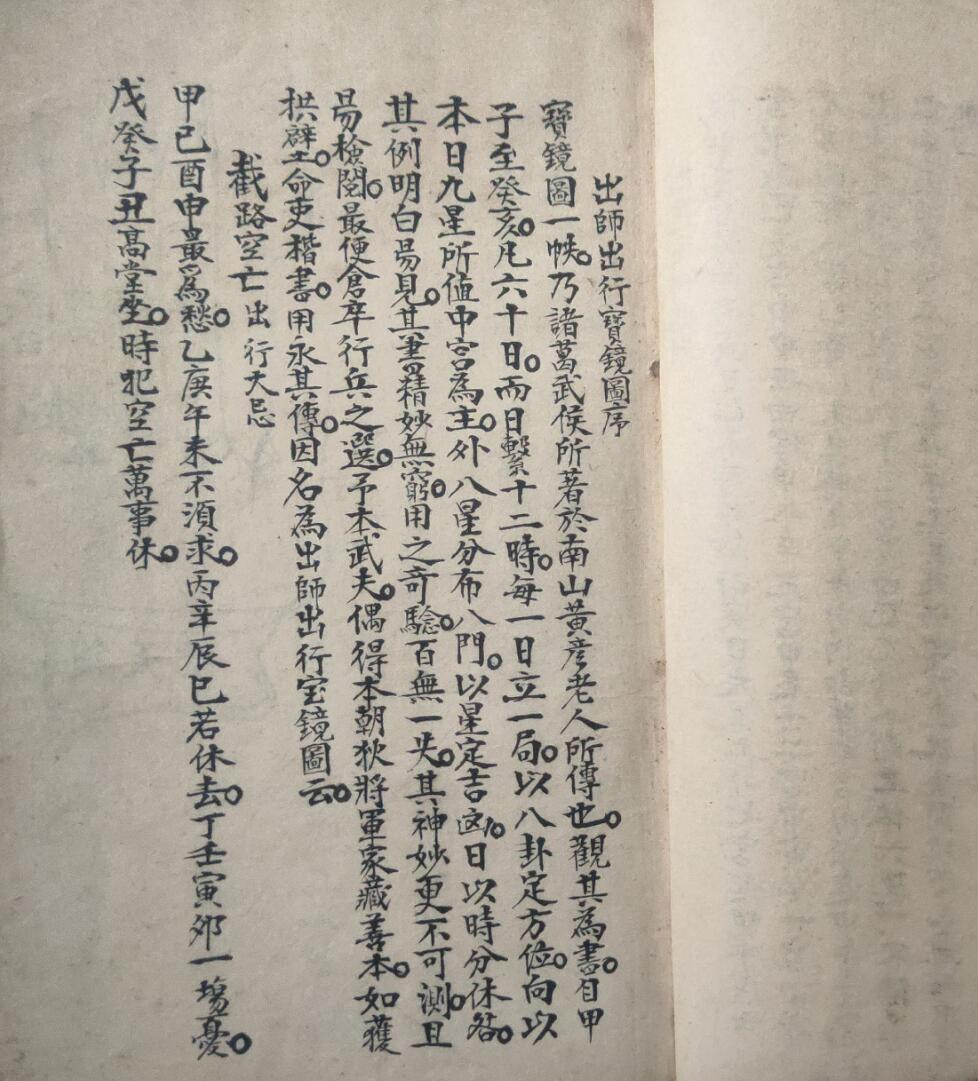 出師出行寶鏡圖序
寶鏡圖一帙。乃諸葛武侯所著於南山黃彦老人所傳也。觀其為書。自甲
子至癸亥。凡六十日。而日繫十二時。每一日立一局。以八卦定方位。向以
本日九星所值中宮為主。外八星分布八門。以星定吉凶。日以時分休咎。
其例明白昜見。其筭精妙無窮。用之奇騐。百無一失。其神妙更不可測。且
昜檢閲。最便倉卒行兵之選。予本武夫。偶得本朝狄將軍家藏善本。如獲
拱璧。命吏楷書。用永其傳。因名為出師出行宝鏡圖云。
截路空亡 出行大忌
甲己酉申最爲愁。乙庚午未不湏求。丙辛辰巳若休去。丁壬寅夘一塲憂。
戊癸子丑髙堂坐。時犯空亡萬事休。